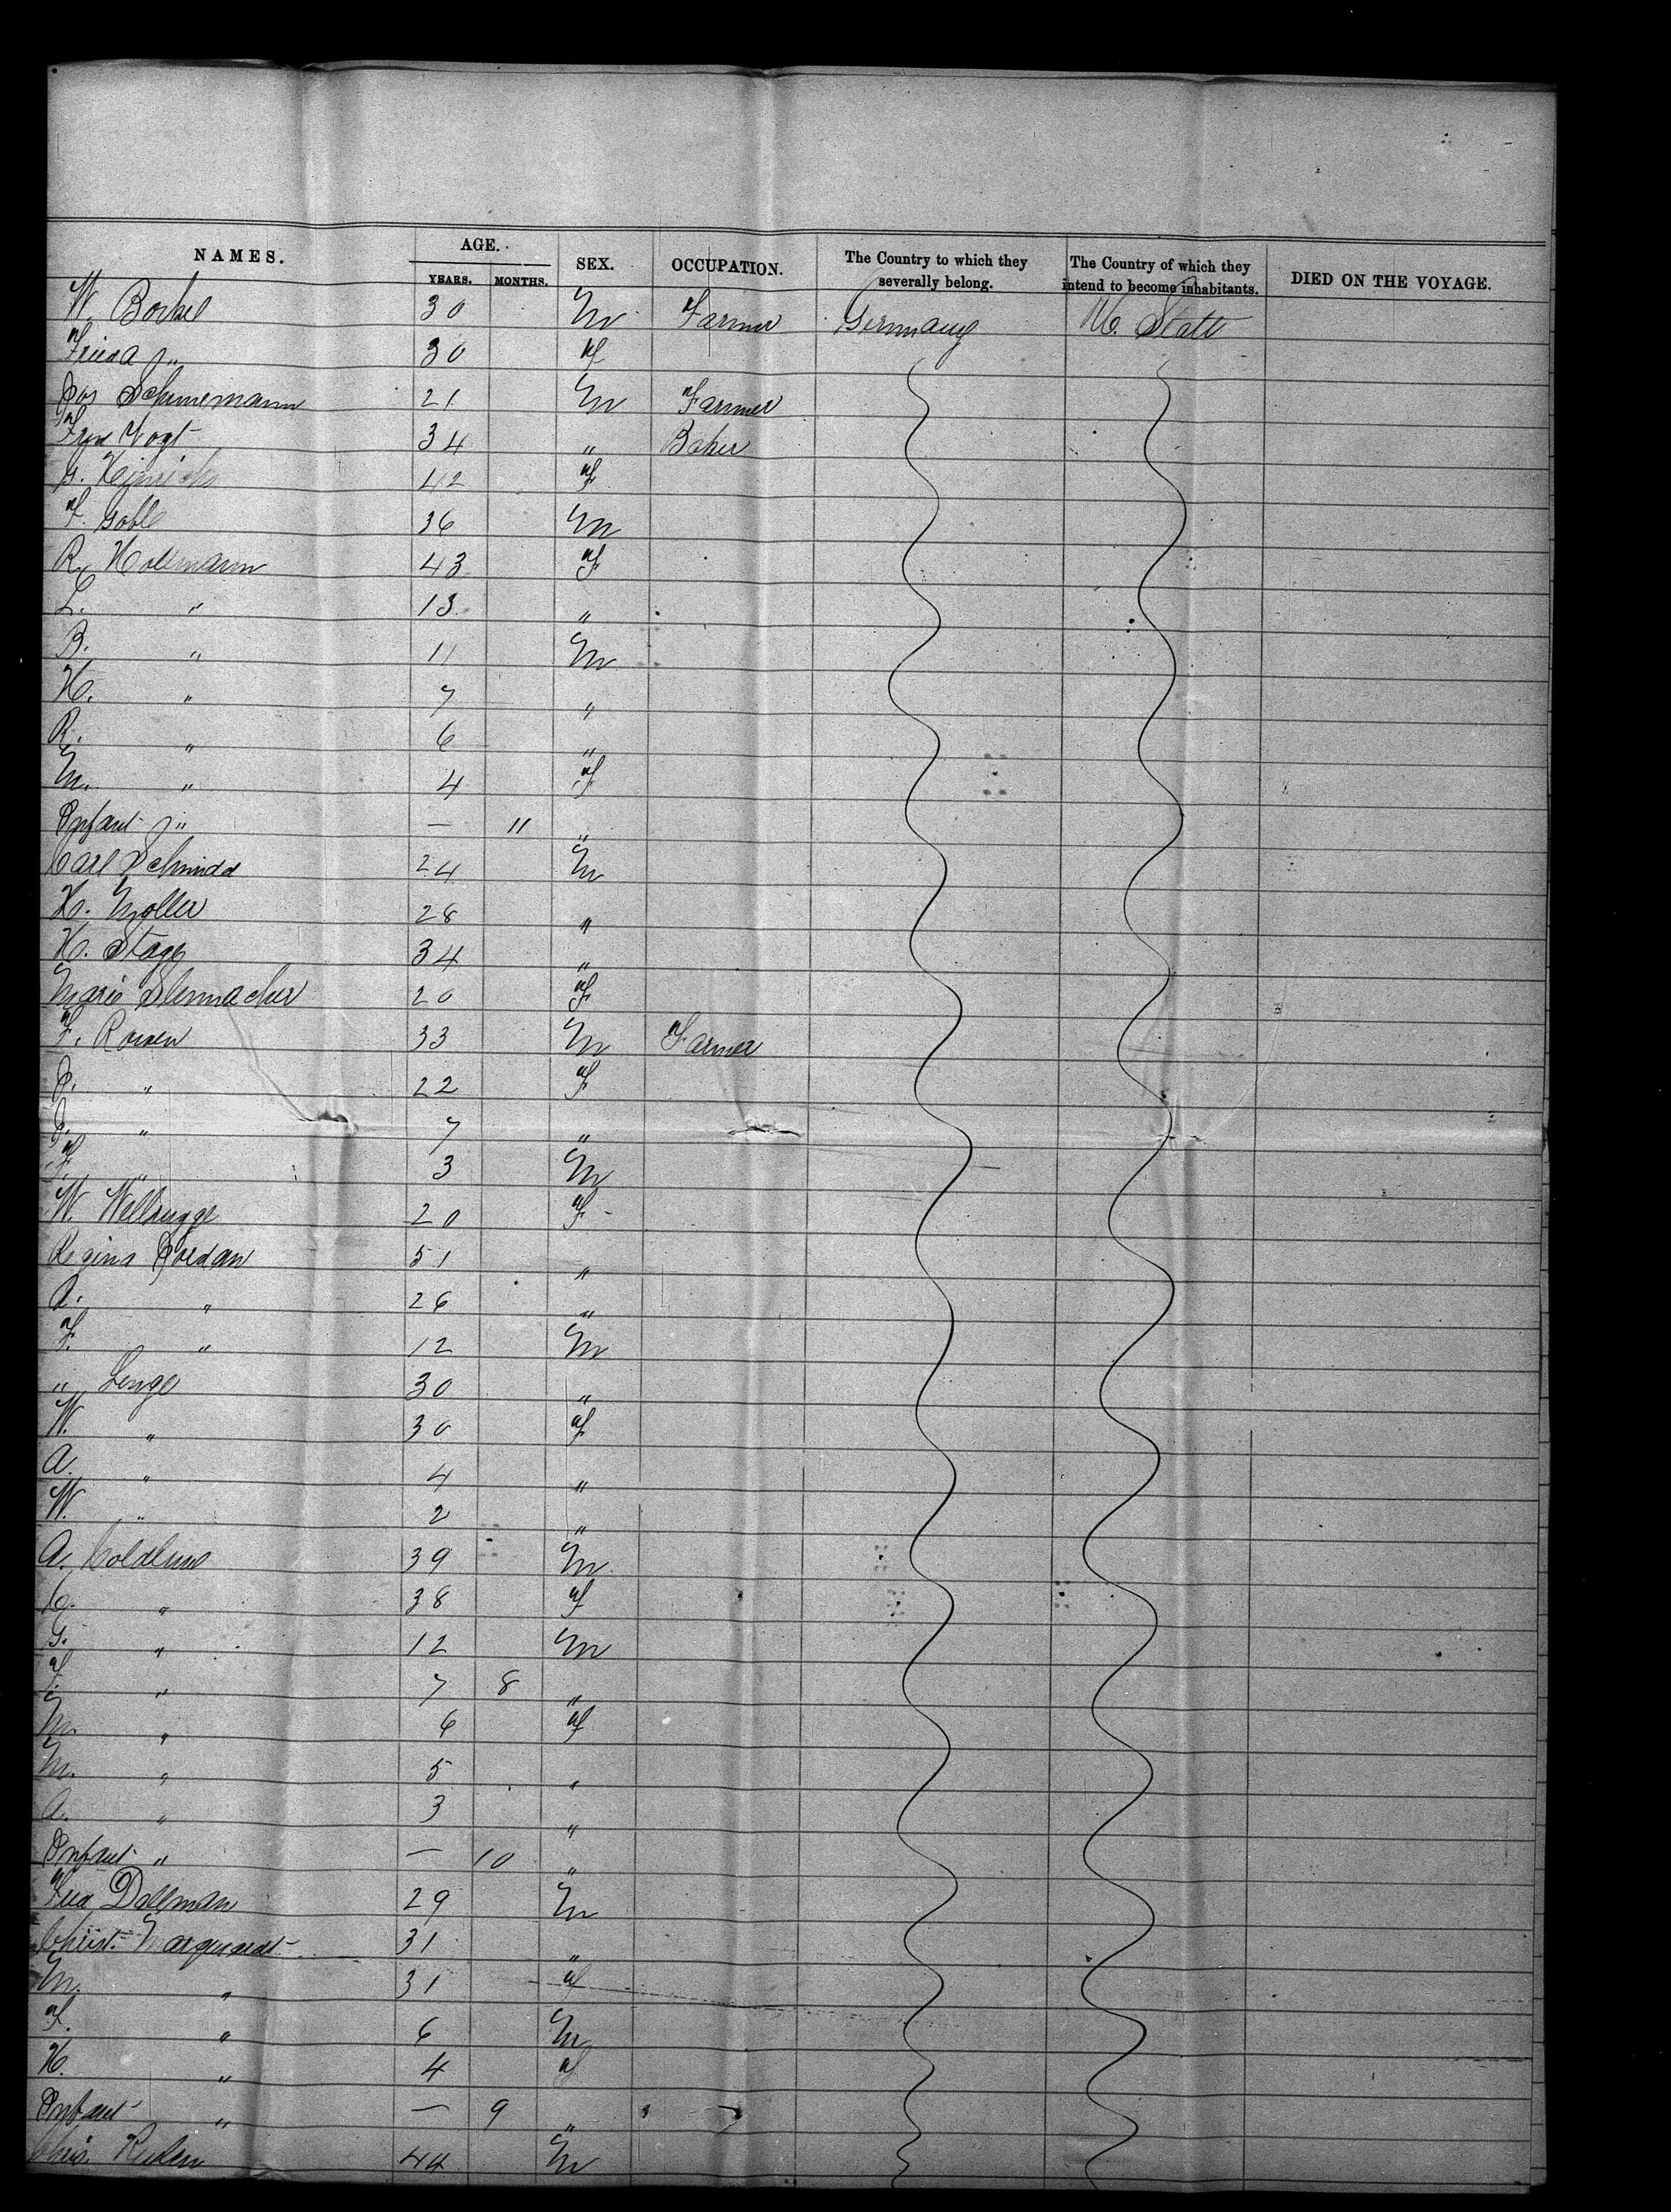 NAMES. AGE. SEX. OCCUPATION. The Country to which they severally belong. The Country of which they intend to become inhabitants. DIED ON THE VOYAGE.
YEARS. MONTHS.
W. 30 M Farmer Germany U. State
Frieda " 30 F
Jos Schunemann 21 M Farmer
Fred Vogt 34 " Baker
G. Heinrichs 42 F
F. Goble 36 M
R. Holtmann 43 F
L. " 13 "
B. " 11 M
H. " 7 "
R. " 6 "
M. " 4 F
Infant " — 11 "
Carl Schmidd 24 M
H. Moller 28 "
H. Stagg 34 "
Marie 20 F
F. 33 M Farmer
J. " 22 F
J. " 7 "
F. " 3 M
W. Wellbrugge 20 F
Regina Jordan 51 "
R. " 26 "
F. " 12 M
" Lenge 30 "
W. " 30 F
A. " 4 "
W. " 2 "
A. 39 M
C. " 38 F
G. " 12 M
F. " 7 8 "
M. " 6 F
M. " 5 "
A. " 3 "
Infant " — 10 "
Fred Dallman 29 M
Christ. Marquardt 31 "
M. " 31 F
F. " 6 M
H. " 4 F
Infant " — 9 "
Chris. 44 M